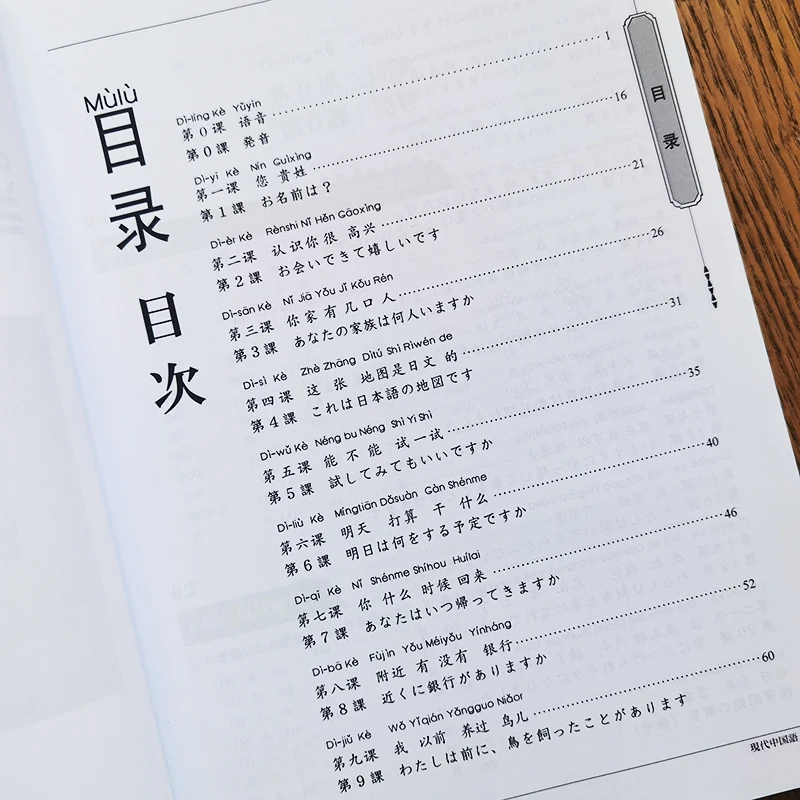 Mùlù
目录
目次
Dì-líng Kè Yǔyīn
第0课 语音 1
第0課 発音
Dì-yī Kè Nín Guìxìng
第一课 您 贵姓 16
第1課 お名前は？
Dì-èr Kè Rènshi Nǐ Hěn Gāoxìng
第二课 认识你很 高兴 21
第2課 お会いできて嬉しいです
Dì-sān Kè Nǐ Jiā Yǒu Jǐ Kǒu Rén
第三课 你家有几口人 26
第3課 あなたの家族は何人いますか
Dì-sì Kè Zhè Zhāng Dìtú Shì Rìwén de
第四课 这 张 地图是日文 的 31
第4課 これは日本語の地図です
Dì-wǔ Kè Néng bu Néng Shì Yi Shì
第五课 能 不 能 试一试 35
第5課 試してみてもいいですか
Dì-liù Kè Míngtiān Dǎsuàn Gàn Shénme
第六课 明天 打算 干 什么 40
第6課 明日は何をする予定ですか
Dì-qī Kè Nǐ Shénme Shíhou Huílai
第七课 你 什么 时候 回来 46
第7課 あなたはいつ帰ってきますか
Dì-bā Kè Fùjìn Yǒu Méiyǒu Yínháng
第八课 附近 有 没有 银行 52
第8課 近くに銀行がありますか
Dì-jiǔ Kè Wǒ Yǐqián Yǎngguo Niǎor
第九课 我 以前 养过 鸟儿 60
第9課 わたしは前に、鳥を飼ったことがあります
目录
現代中国語